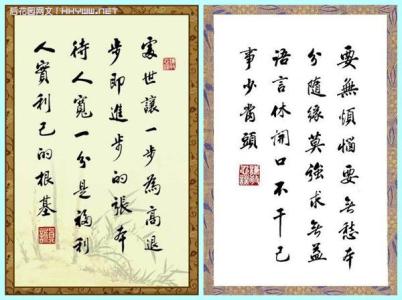 后花园网文
處世讓一步為高退
步即進步的張本
待人寬一分是福利
人實利己的根基
要無煩惱要無愁本
分隨緣莫強求無益
語言休開口不干己
事少當頭